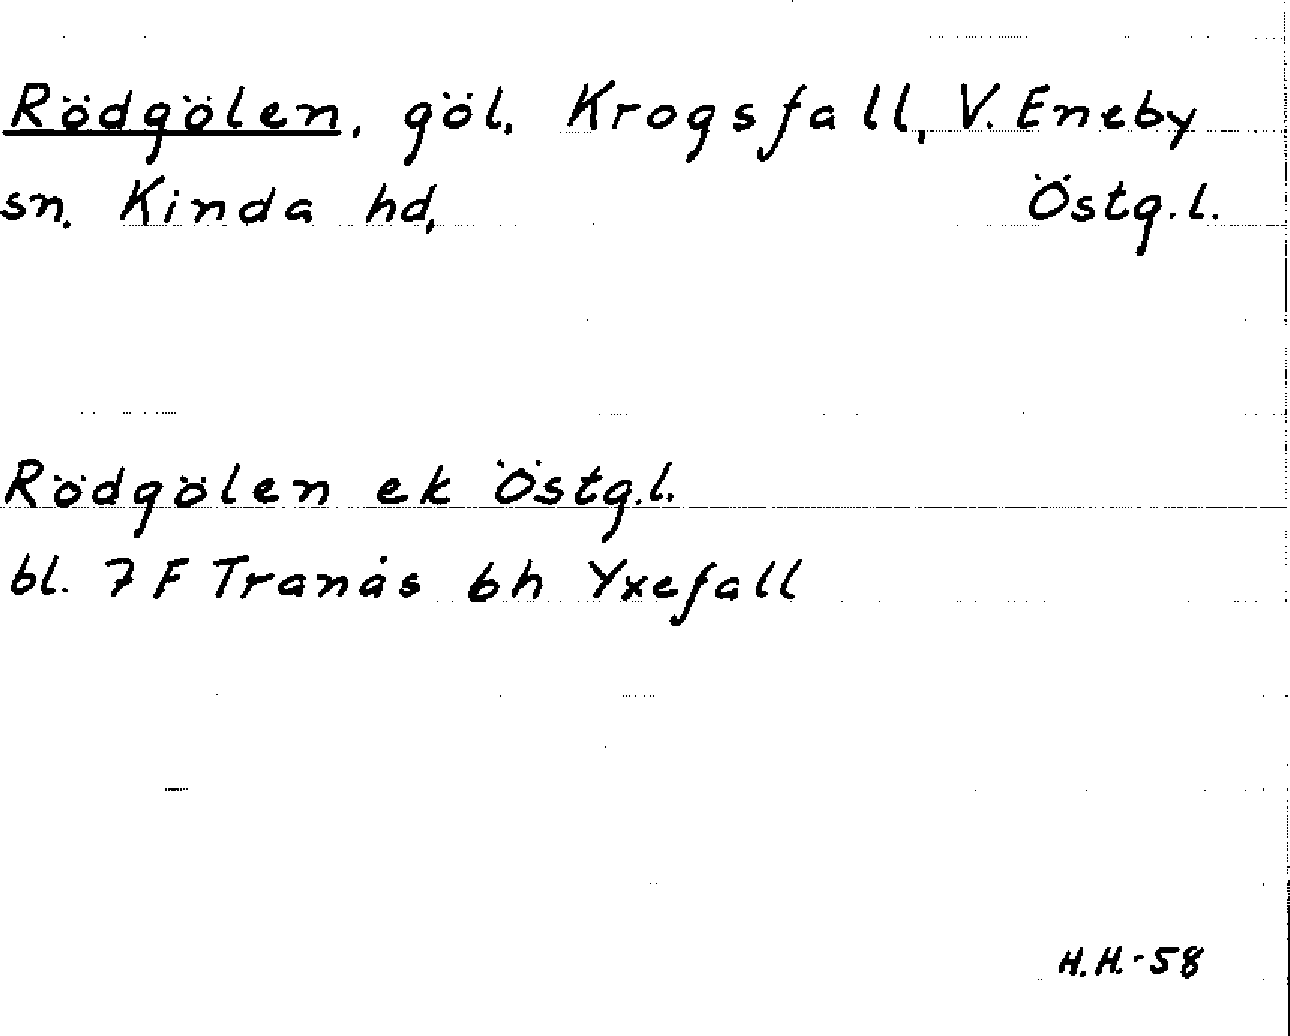 Rödgölen, göl, Krogsfall, V. Eneby
sn. Kinda hd, Östg.l.
Rödgölen ek Östg.l.
bl. 7 F Tranås 6h Yxefall
H.H.-58